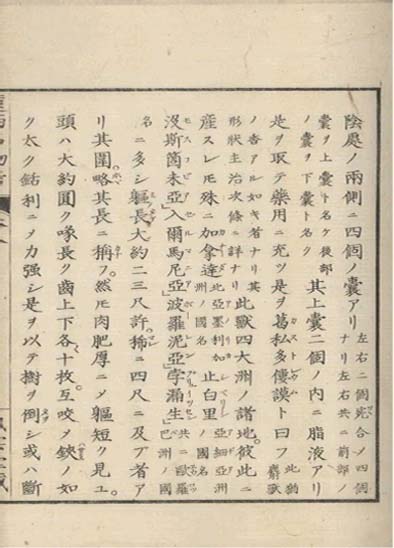 陰處ノ兩側ニ四個ノ嚢アリ左右二個宛合ノ四個ナリ左右共ニ前部ノ
嚢ヲ上嚢ト名ケ後部ノ嚢ヲ下嚢ト名ク其上嚢二個ノ内ニ脂液アリ
是ヲ取テ藥用ニ充ツ是ヲ葛私多僂謨ト曰フ此物麝
ノ香アル如キ者ナリ其形狀主治次條ニ詳ナリ此獸四大洲ノ諸地。彼此ニ
産スレ𪜈殊ニ加拿達北亞墨利加洲ノ國名止白里亞細亞洲ノ國名
沒斯箇未亞入爾馬尼亞波羅泥亞孛漏生共ニ歐羅巴洲ノ國
名ニ多シ軀長大約二三尺許。稀ニ四尺ニ及フ者ア
リ其圍略其長ニ稱フ。然𪜈肉肥厚ニ〆軀短ク見ユ。
頭ハ大約圓ク喙長ク齒上下各十枚。互ニ咬メ鋏ノ如
ク太ク銛利ニ〆力强シ是ヲ以テ樹ヲ倒シ或ハ斷